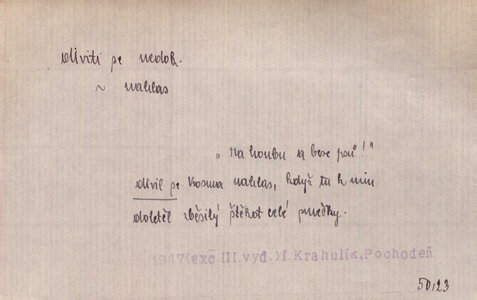 diviti se nedok.
~ nahlas
"Na houbu a bere psů!"
divil se Kosina nahlas, když tu k nim
doletěl zběsilý štěkot celé smečky.
1947(exc.III.vyd.)I.Krahulík,Pochodeň
50/23